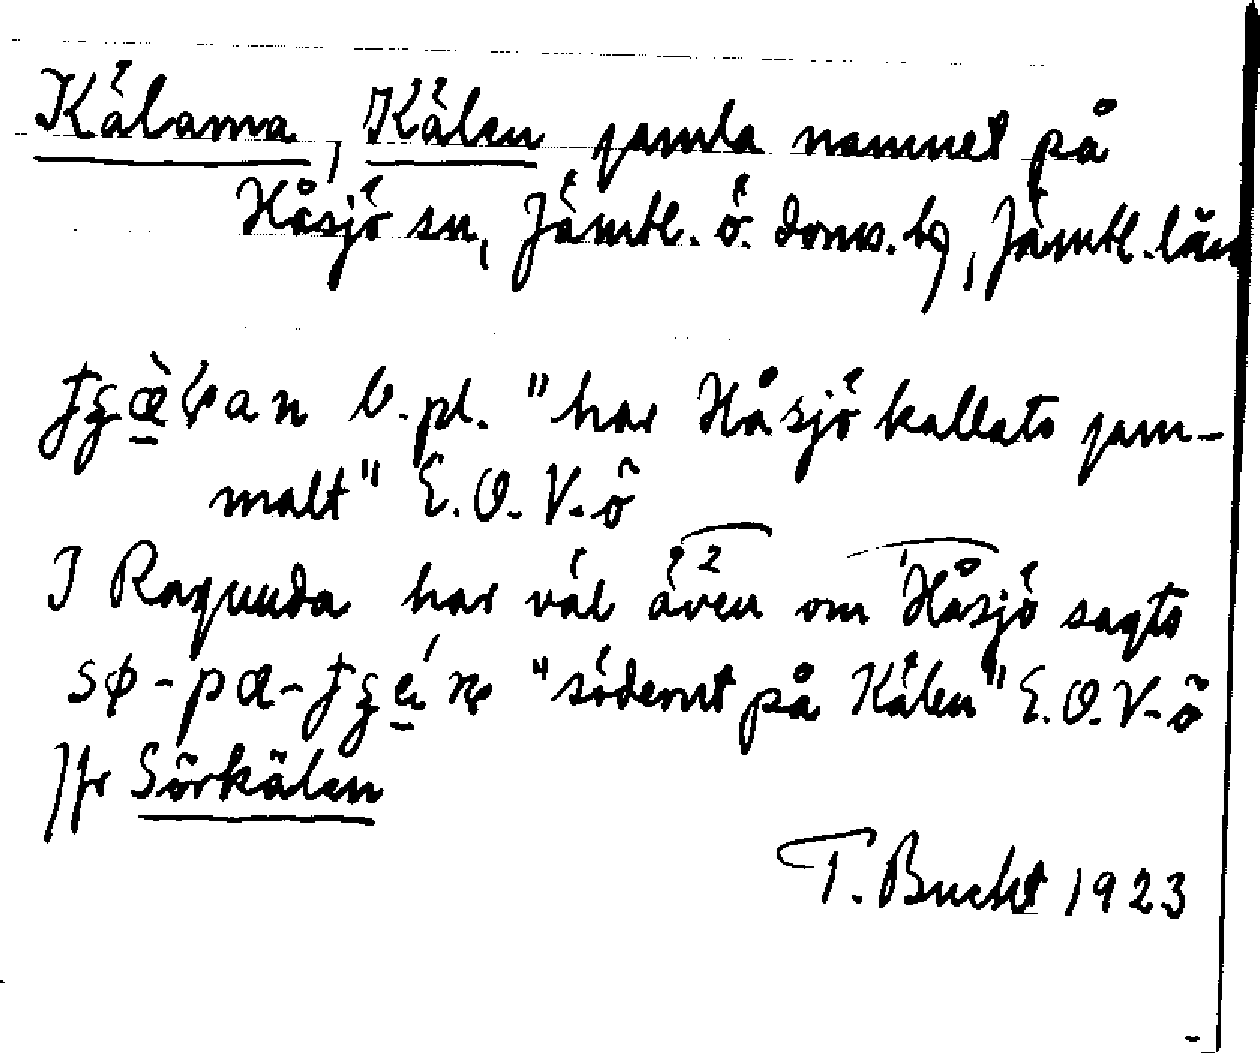 Kälarna, Kälen gamla namnet på
Håsjö sn, Jämtl. ö. doms. by, Jämtl. län
b. pl. "har Håsjö kallats gam-
malt" E. O. V-ö
I Ragunda har väl även om Håsjö sagts
"söderut på Kälen" E. O. V-ö
Jfr Sörkälen
T. Bucht 1923